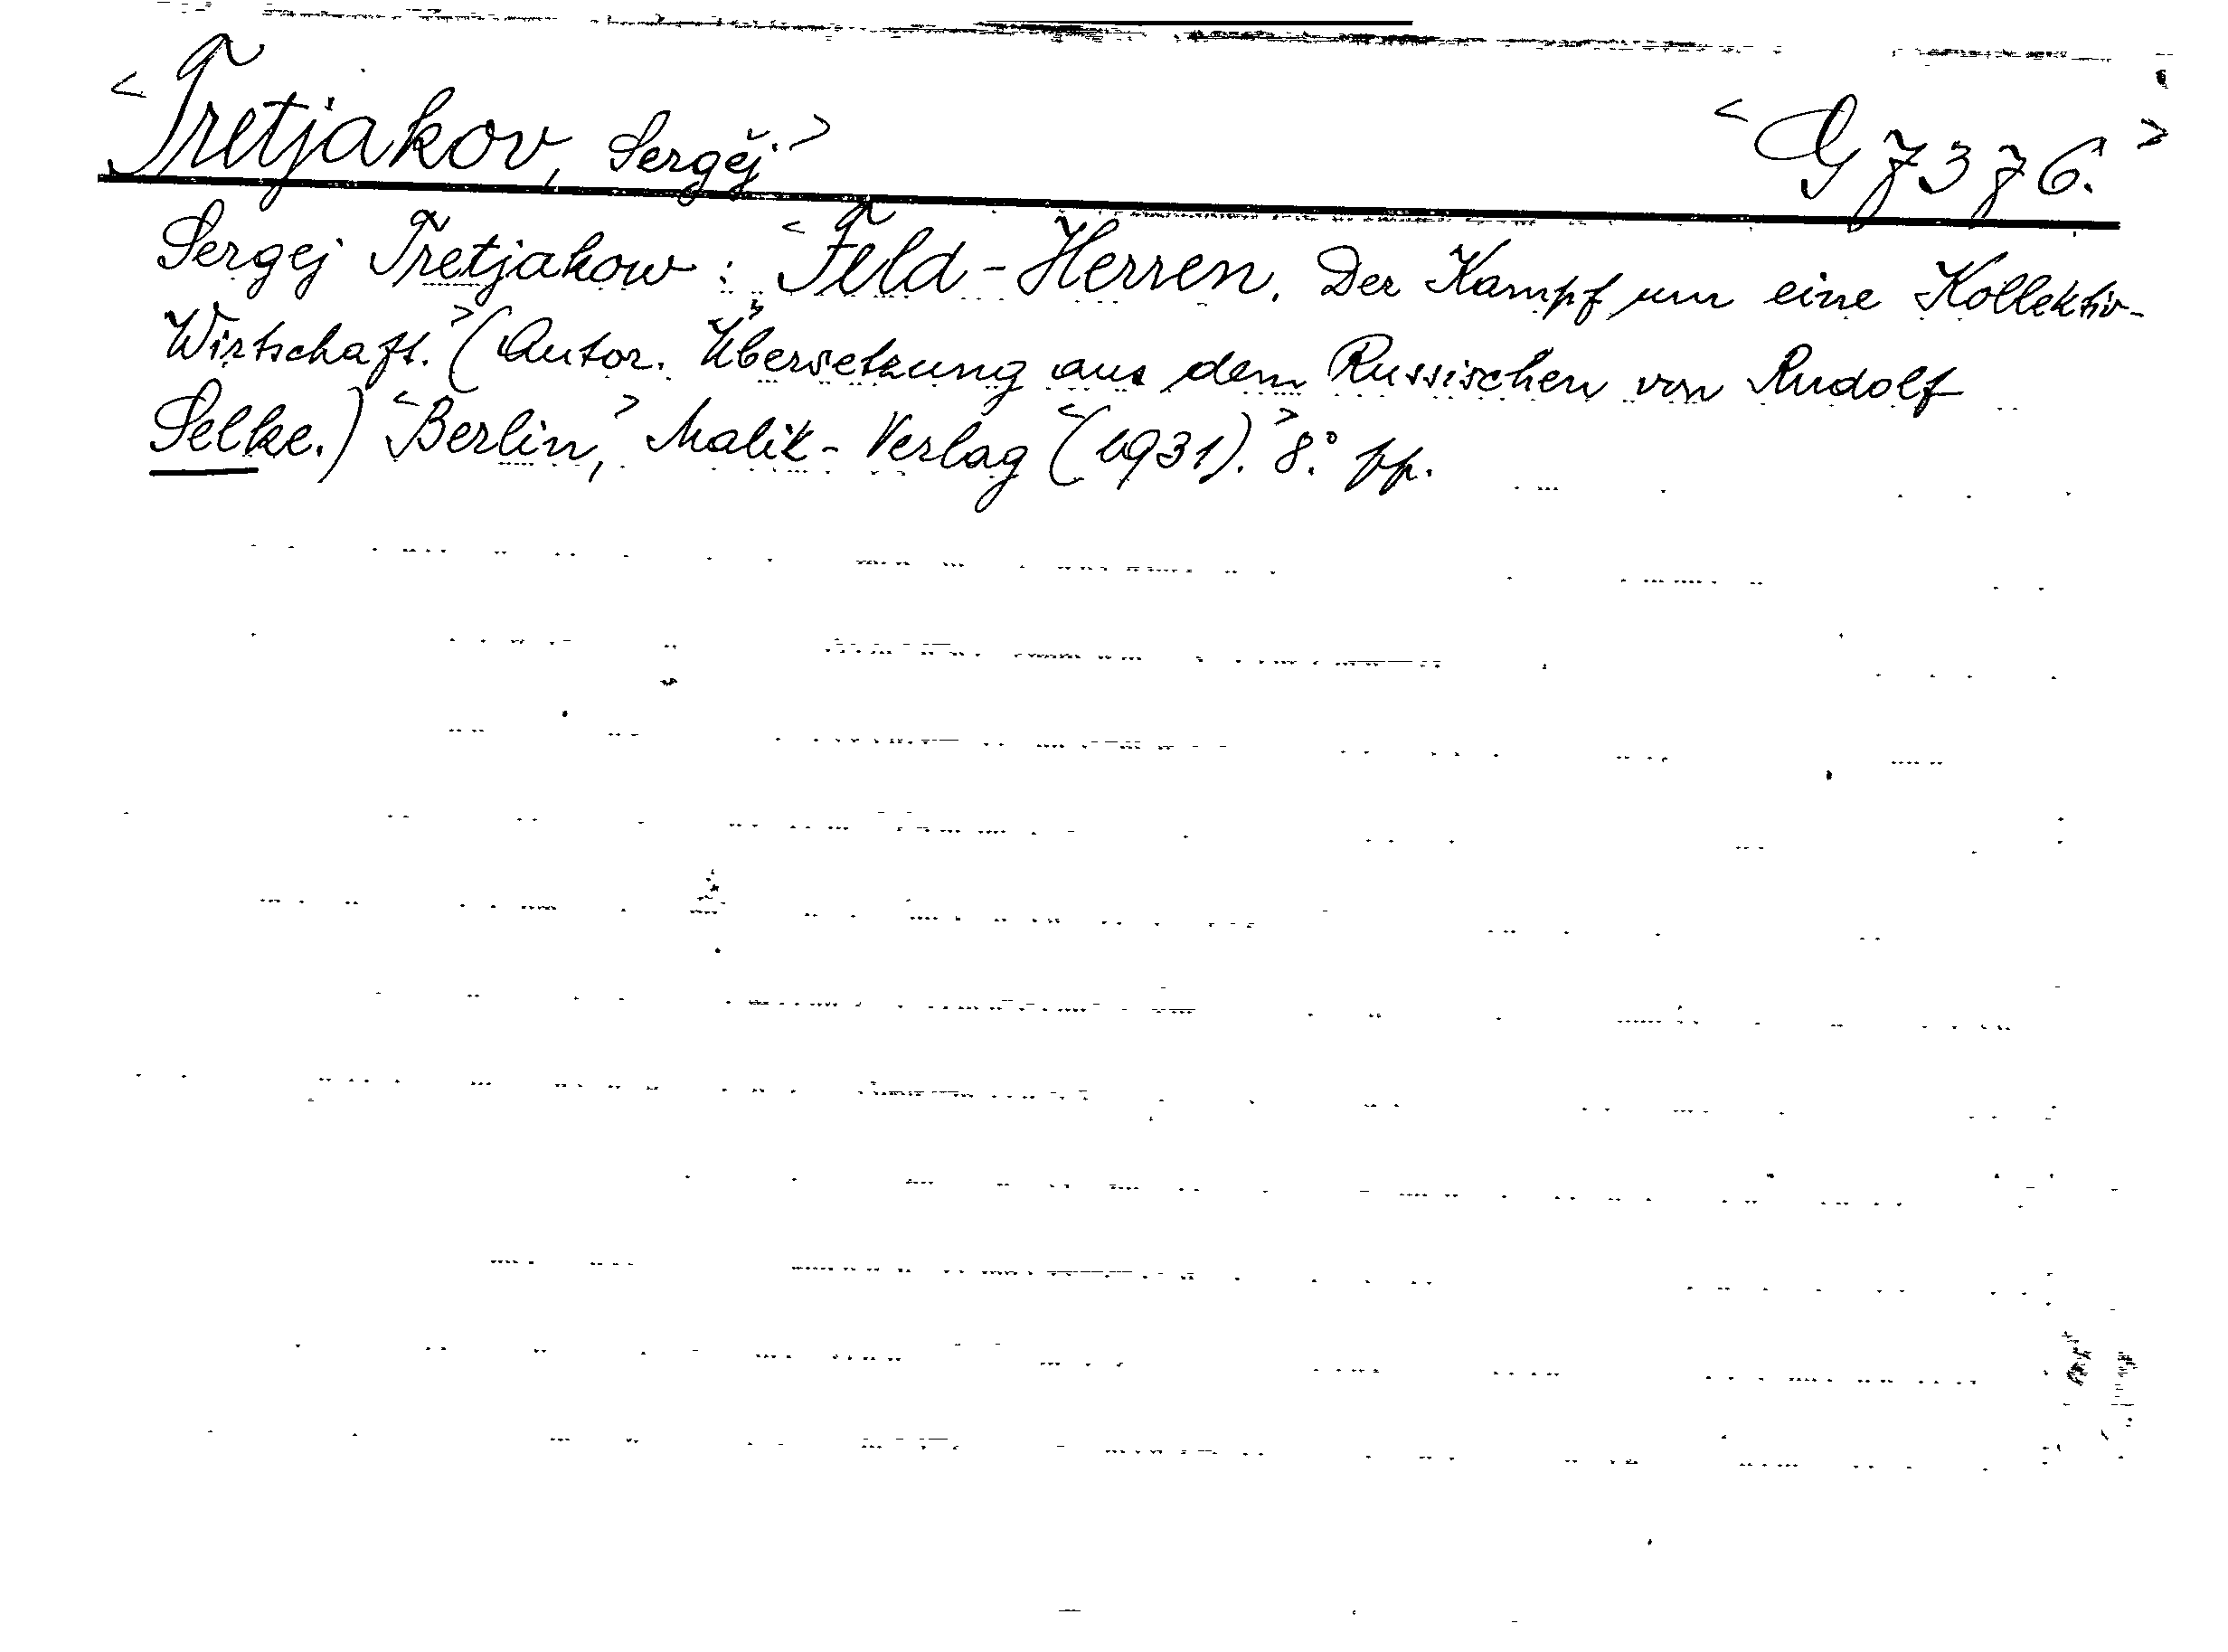 <Tretjakov, Sergěj.> <G 7376.>
Sergej Tretjakow: <Feld-Herren. Der Kampf um eine Kollektiv-
Wirtschaft.> (Autor. Übersetzung aus dem Russischen von Rudolf
Selke.) <Berlin,> Malik-Verlag <(1931).> 8.° pp.